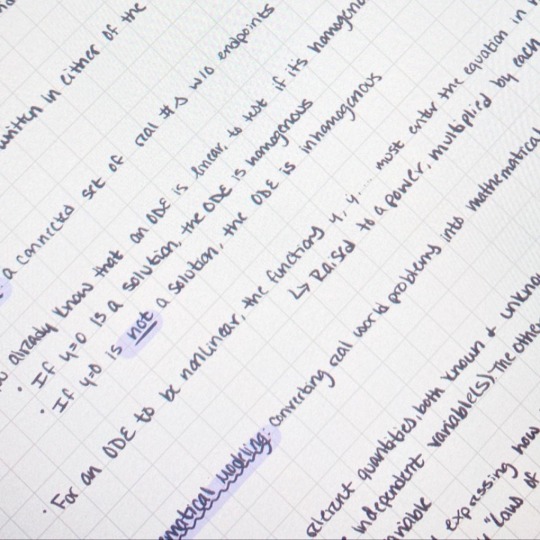 written in either of the
a connected set of real #s w/o endpoints
already know that an ODE is linear, to test if its homogeno
· If y=0 is a solution, the ODE is homogenous
· If y=0 is not a solution, the ODE is inhomogenous
· For an ODE to be nonlinear, the functions y, y, ... must enter the equation in
↳ Raised to a power, multiplied by each
matical Modeling: converting real world problems into mathematical
relevant quantities both known + unkno
independent variable(s). The othe
variable
expressing how
"laws of